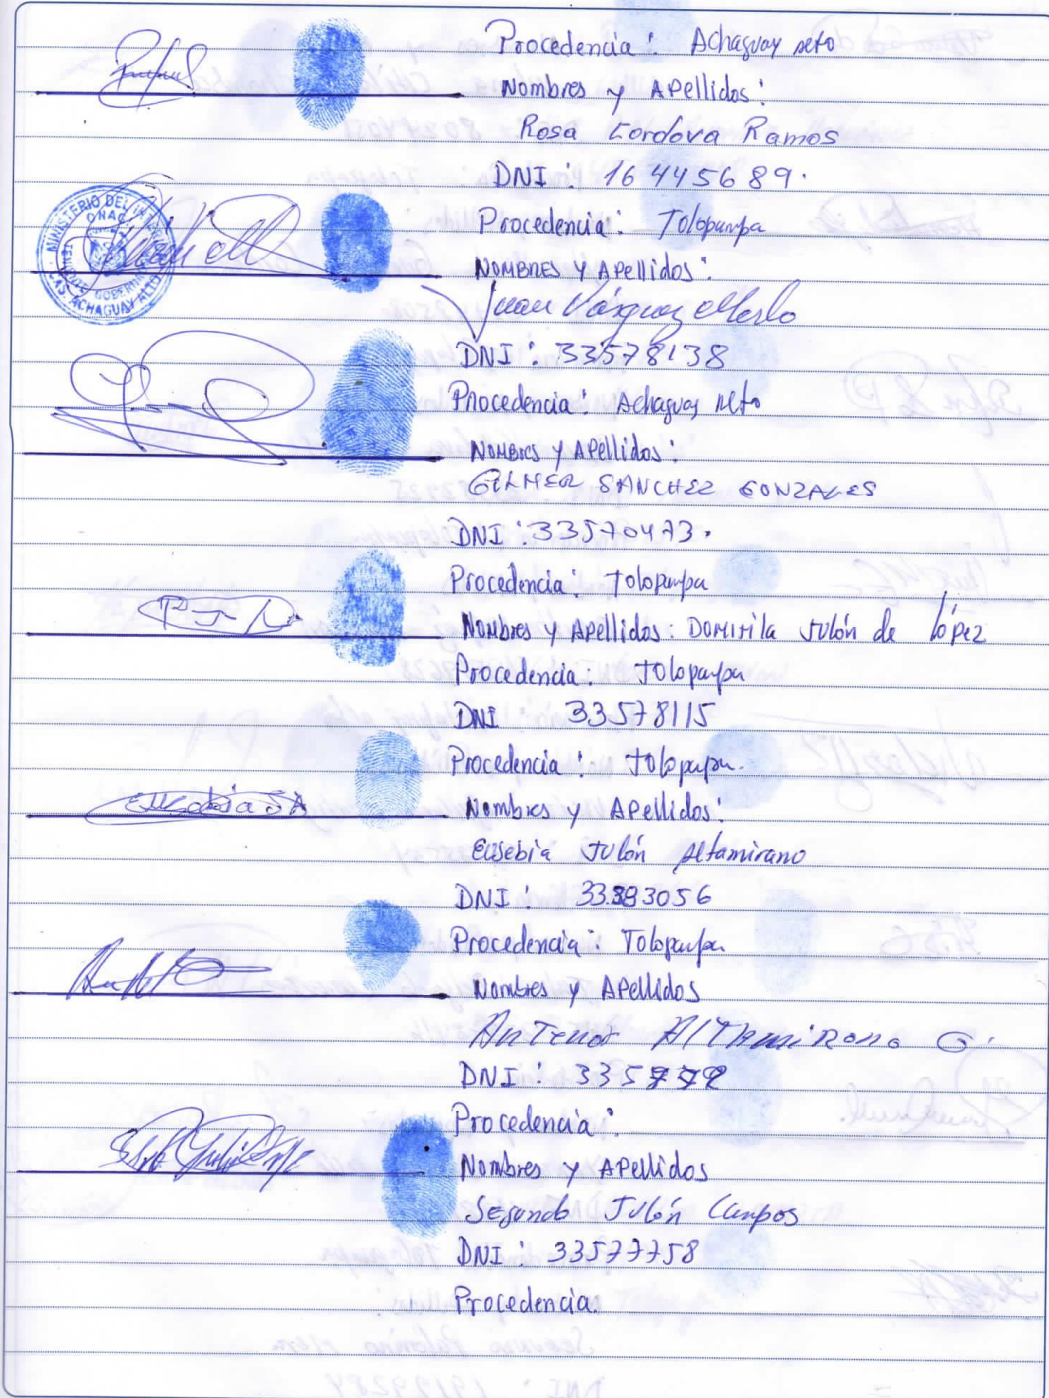 Procedencia: Achaguay
Nombres y Apellidos:
Rosa Cordova Ramos
DNI: 16445689.
Procedencia: Tolopampa
MINISTERIO DEL
ONAG
ACHAGUAY ALTO
Nombres y Apellidos:
Juan Vásquez
DNI: 33578138
Procedencia: Achaguay
Nombres y Apellidos:
GILMER SANCHEZ GONZALES
DNI: 33570473.
Procedencia: Tolopampa
Nombres y Apellidos: Domitila Julón de López
Procedencia: Tolopampa
DNI 33578115
Procedencia: Tolopampa.
Eusebia JA
Nombres y Apellidos:
Eusebia Julón Altamirano
DNI: 33593056
Procedencia: Tolopampa
Nombres y Apellidos
Antenor Altamirano G.
DNI:
Procedencia:
Nombres y Apellidos
Segundo Julón Campos
DNI: 33577758
Procedencia: